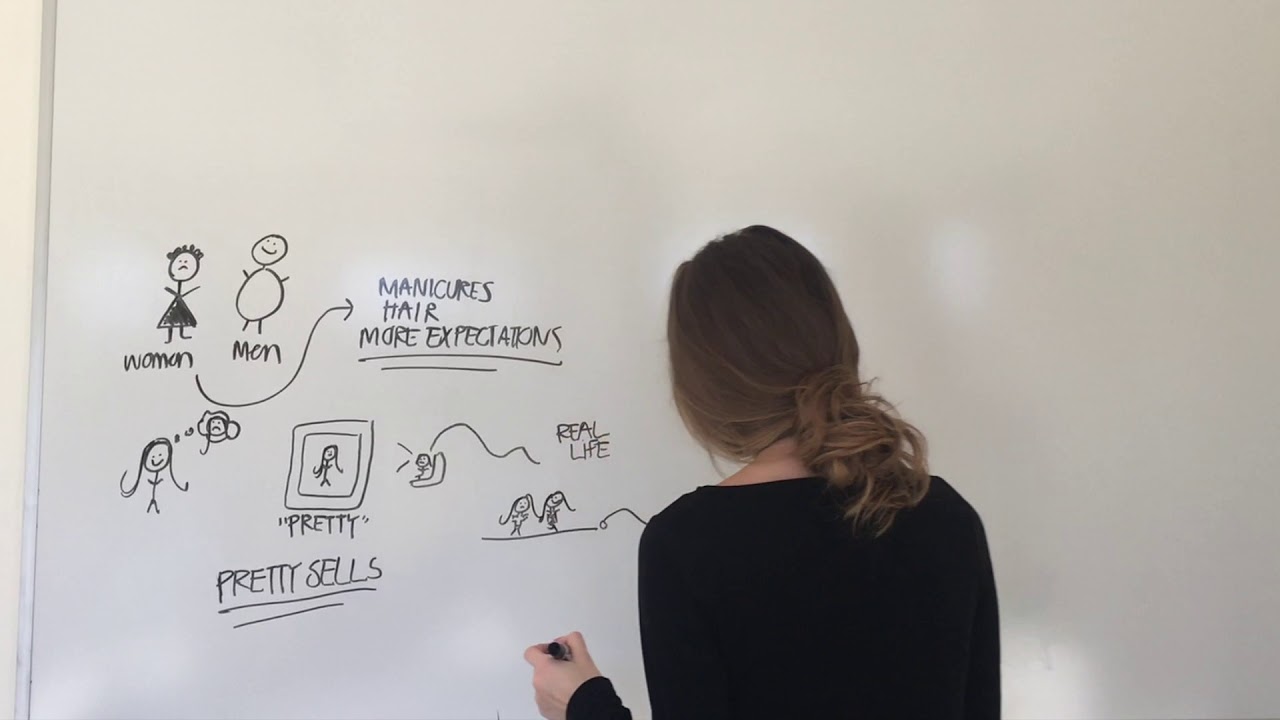 women Men
MANICURES
HAIR
MORE EXPECTATIONS
REAL
LIFE
"PRETTY"
PRETTY SELLS